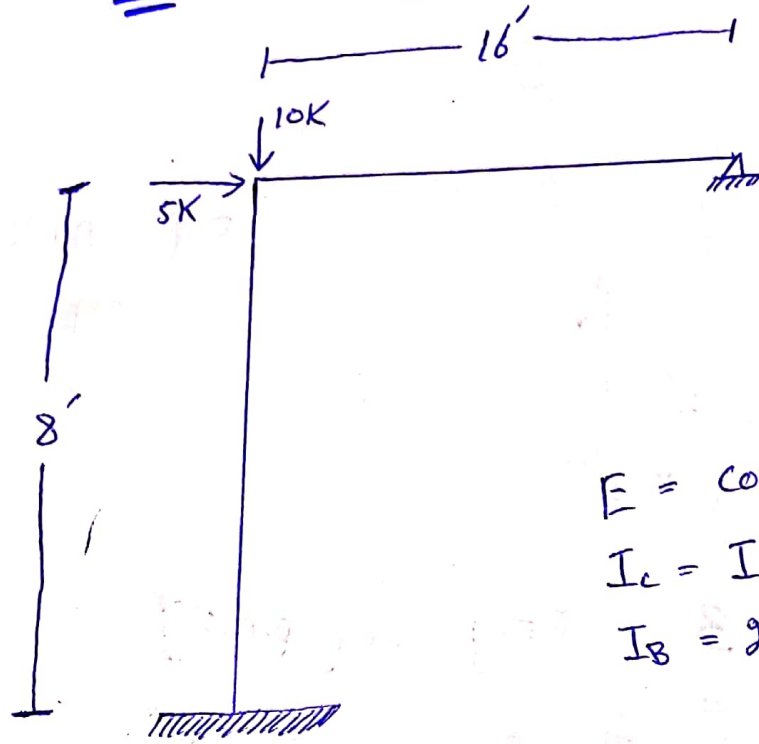 16'
10K
5K
8'
E = co
I_c = I
I_B = 2